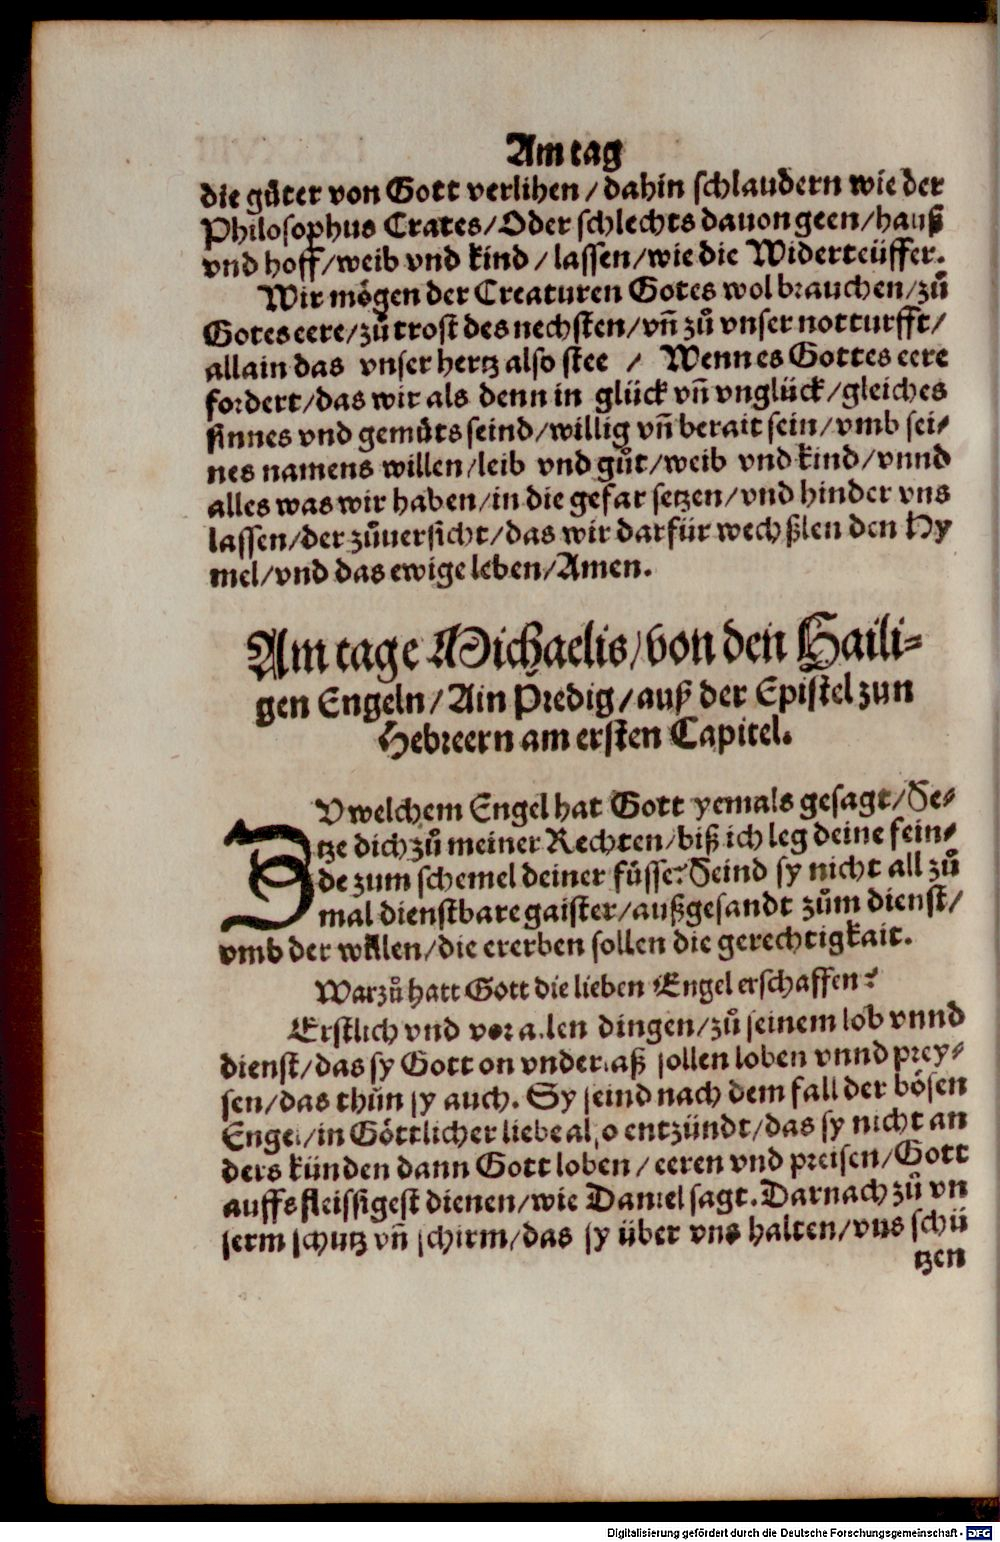 Am tag
die gůter von Gott verlihen / dahin schlaudern wie der
Philosophus Crates / Oder schlechts dauon geen / hauß
vnd hoff / weib vnd kind / lassen / wie die Widerteüffer.
Wir mögen der Creaturen Gotes wol brauchen / zů
Gotes eere / zů trost des nechsten / vñ zů vnser notturfft /
allain das vnser hertz also stee / Wenn es Gottes eere
fordert / das wir als denn in glück vñ vnglück / gleiches
sinnes vnd gemůts seind / willig vñ berait sein / vmb sei⸗
nes namens willen / leib vnd gůt / weib vnd kind / vnnd
alles was wir haben / in die gefar setzen / vnd hinder vns
lassen / der zůuersicht / das wir darfür wechßlen den Hy
mel / vnd das ewige leben / Amen.
Am tage Michaelis / von den Haili⸗
gen Engeln / Ain Predig / auß der Epistel zun
Hebreern am ersten Capitel.
ZV welchem Engel hat Gott yemals gesagt / Se⸗
tze dich zů meiner Rechten / biß ich leg deine fein⸗
de zum schemel deiner füsse? Seind sy nicht all zů
mal dienstbare gaister / außgesandt zům dienst /
vmb der willen / die ererben sollen die gerechtigkait.
Warzů hatt Gott die lieben Engel erschaffen?
Erstlich vnd vor allen dingen / zů seinem lob vnnd
dienst / das sy Gott on vnderlaß sollen loben vnnd prey⸗
sen / das thůn sy auch. Sy seind nach dem fall der bösen
Engel / in Göttlicher liebe also entzündt / das sy nicht an
ders künden dann Gott loben / eeren vnd preisen / Gott
auffs fleissigest dienen / wie Daniel sagt. Darnach zů vn
serm schutz vñ schirm / das sy über vns halten / vns schü
tzen
Digitalisierung gefördert durch die Deutsche Forschungsgemeinschaft - DFG